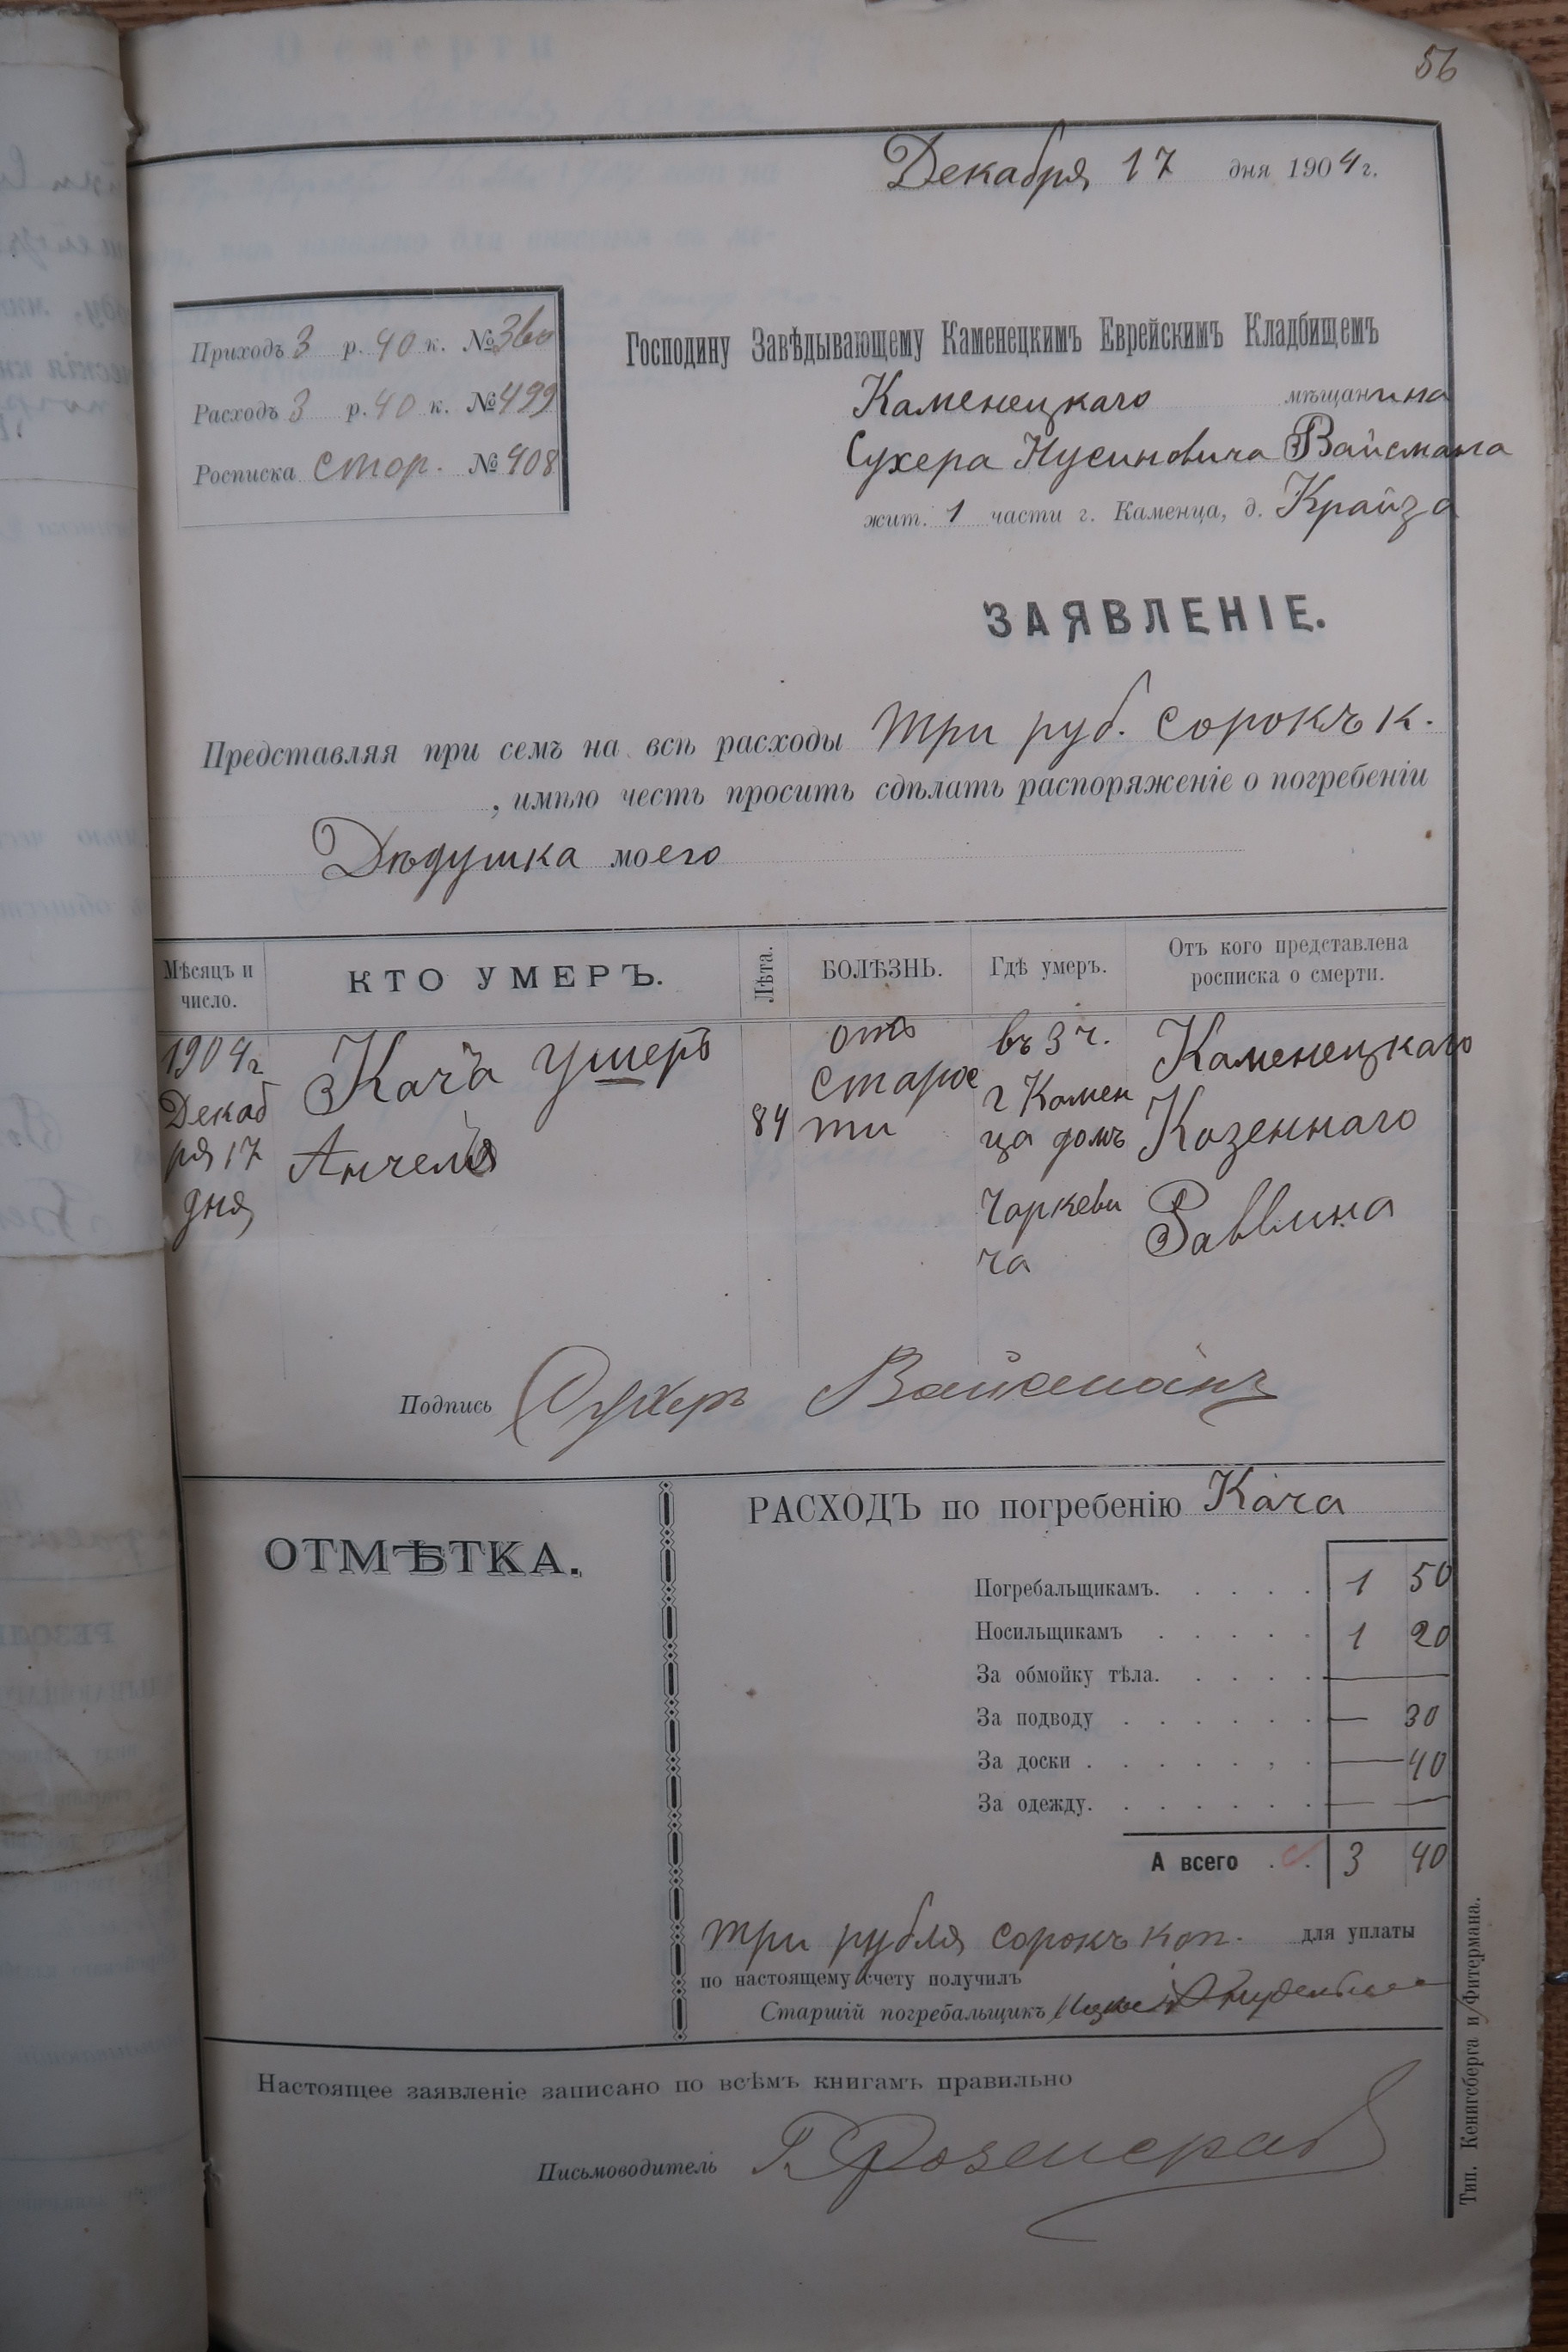 56
Декабря 17 дня 1904 г.
Приходъ 3 р. 40 к. № 360
Расходъ 3 р. 40 к. № 499
Росписка стор. № 408
Господину Завѣдывающему Каменецкимъ Еврейскимъ Кладбищемъ
Каменецкаго мѣщанина
Сухера Нусиновича Вайсмана
жит. 1 части г. Каменца, д. Крайза
ЗАЯВЛЕНІЕ.
Представляя при семъ на всѣ расходы три руб. сорокъ к.
, имѣю честь просить сдѣлать распоряженіе о погребеніи
Дѣдушка моего
Мѣсяцъ и число.
КТО УМЕРЪ.
Лѣта.
БОЛѢЗНЬ.
Гдѣ умеръ.
Отъ кого представлена росписка о смерти.
1904 г.
Декаб
ря 17
дня
Кача Ушеръ
Анчель
84
отъ
старос
ти
въ 3 ч.
г Камен
ца домъ
Чаркеви
ча
Каменецкаго
Козеннаго
Раввина
Подпись Сухеръ Вайсманъ
ОТМѢТКА.
РАСХОДЪ по погребенію Кача
Погребальщикамъ. . . . . 1 50
Носильщикамъ . . . . . 1 20
За обмойку тѣла. . . . . —
За подводу . . . . . . — 30
За доски . . . . . . . — 40
За одежду. . . . . . . — —
А всего . . 3 40
три рубля сорокъ коп. для уплаты
по настоящему счету получилъ
Старшій погребальщикъ
Настоящее заявленіе записано по всѣмъ книгамъ правильно
Письмоводитель
Тип. Кенигсберга и Фитермана.